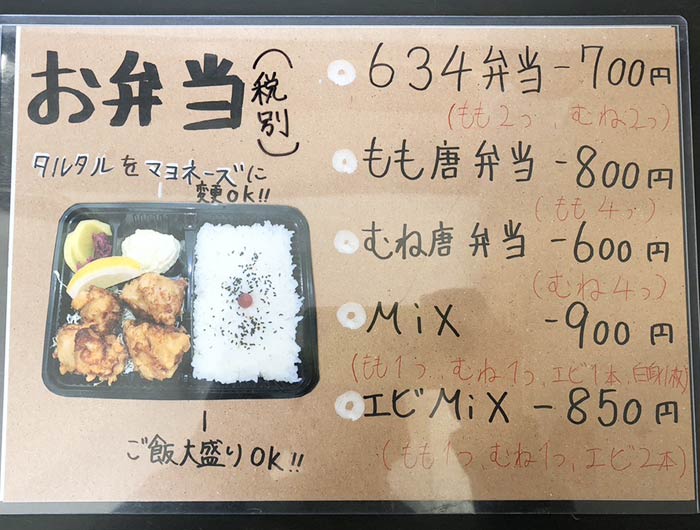 お弁当
(税別)
タルタルをマヨネーズに
変更OK!!
ご飯大盛りOK!!
634弁当-700円
(もも2つ、むね2つ)
もも唐弁当-800円
(もも4つ)
むね唐弁当-600円
(むね4つ)
MiX -900円
(もも1つ、むね1つ、エビ1本、白身1枚)
エビMiX-850円
(もも1つ、むね1つ、エビ2本)